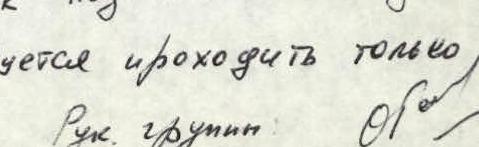 к под
уется проходить только
Рук. группы